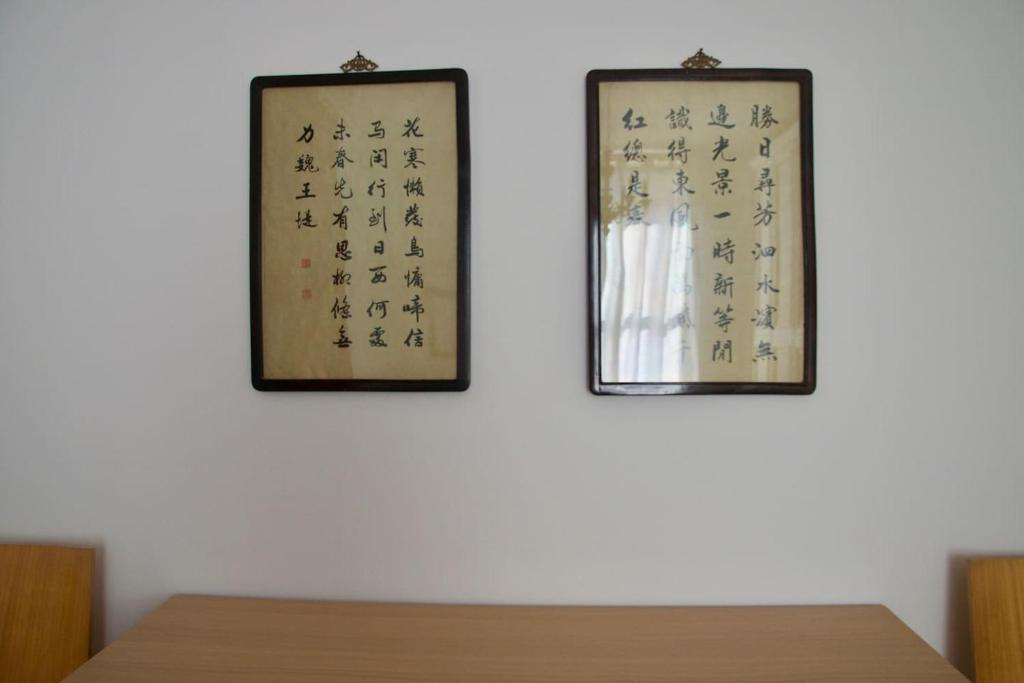 勝日尋芳泗水濱無
邊光景一時新等閒
識得東風面萬紫千
紅總是春
花寒懶發鳥慵啼信
马闲行到日西何處
未春先有思柳條無
力魏王堤